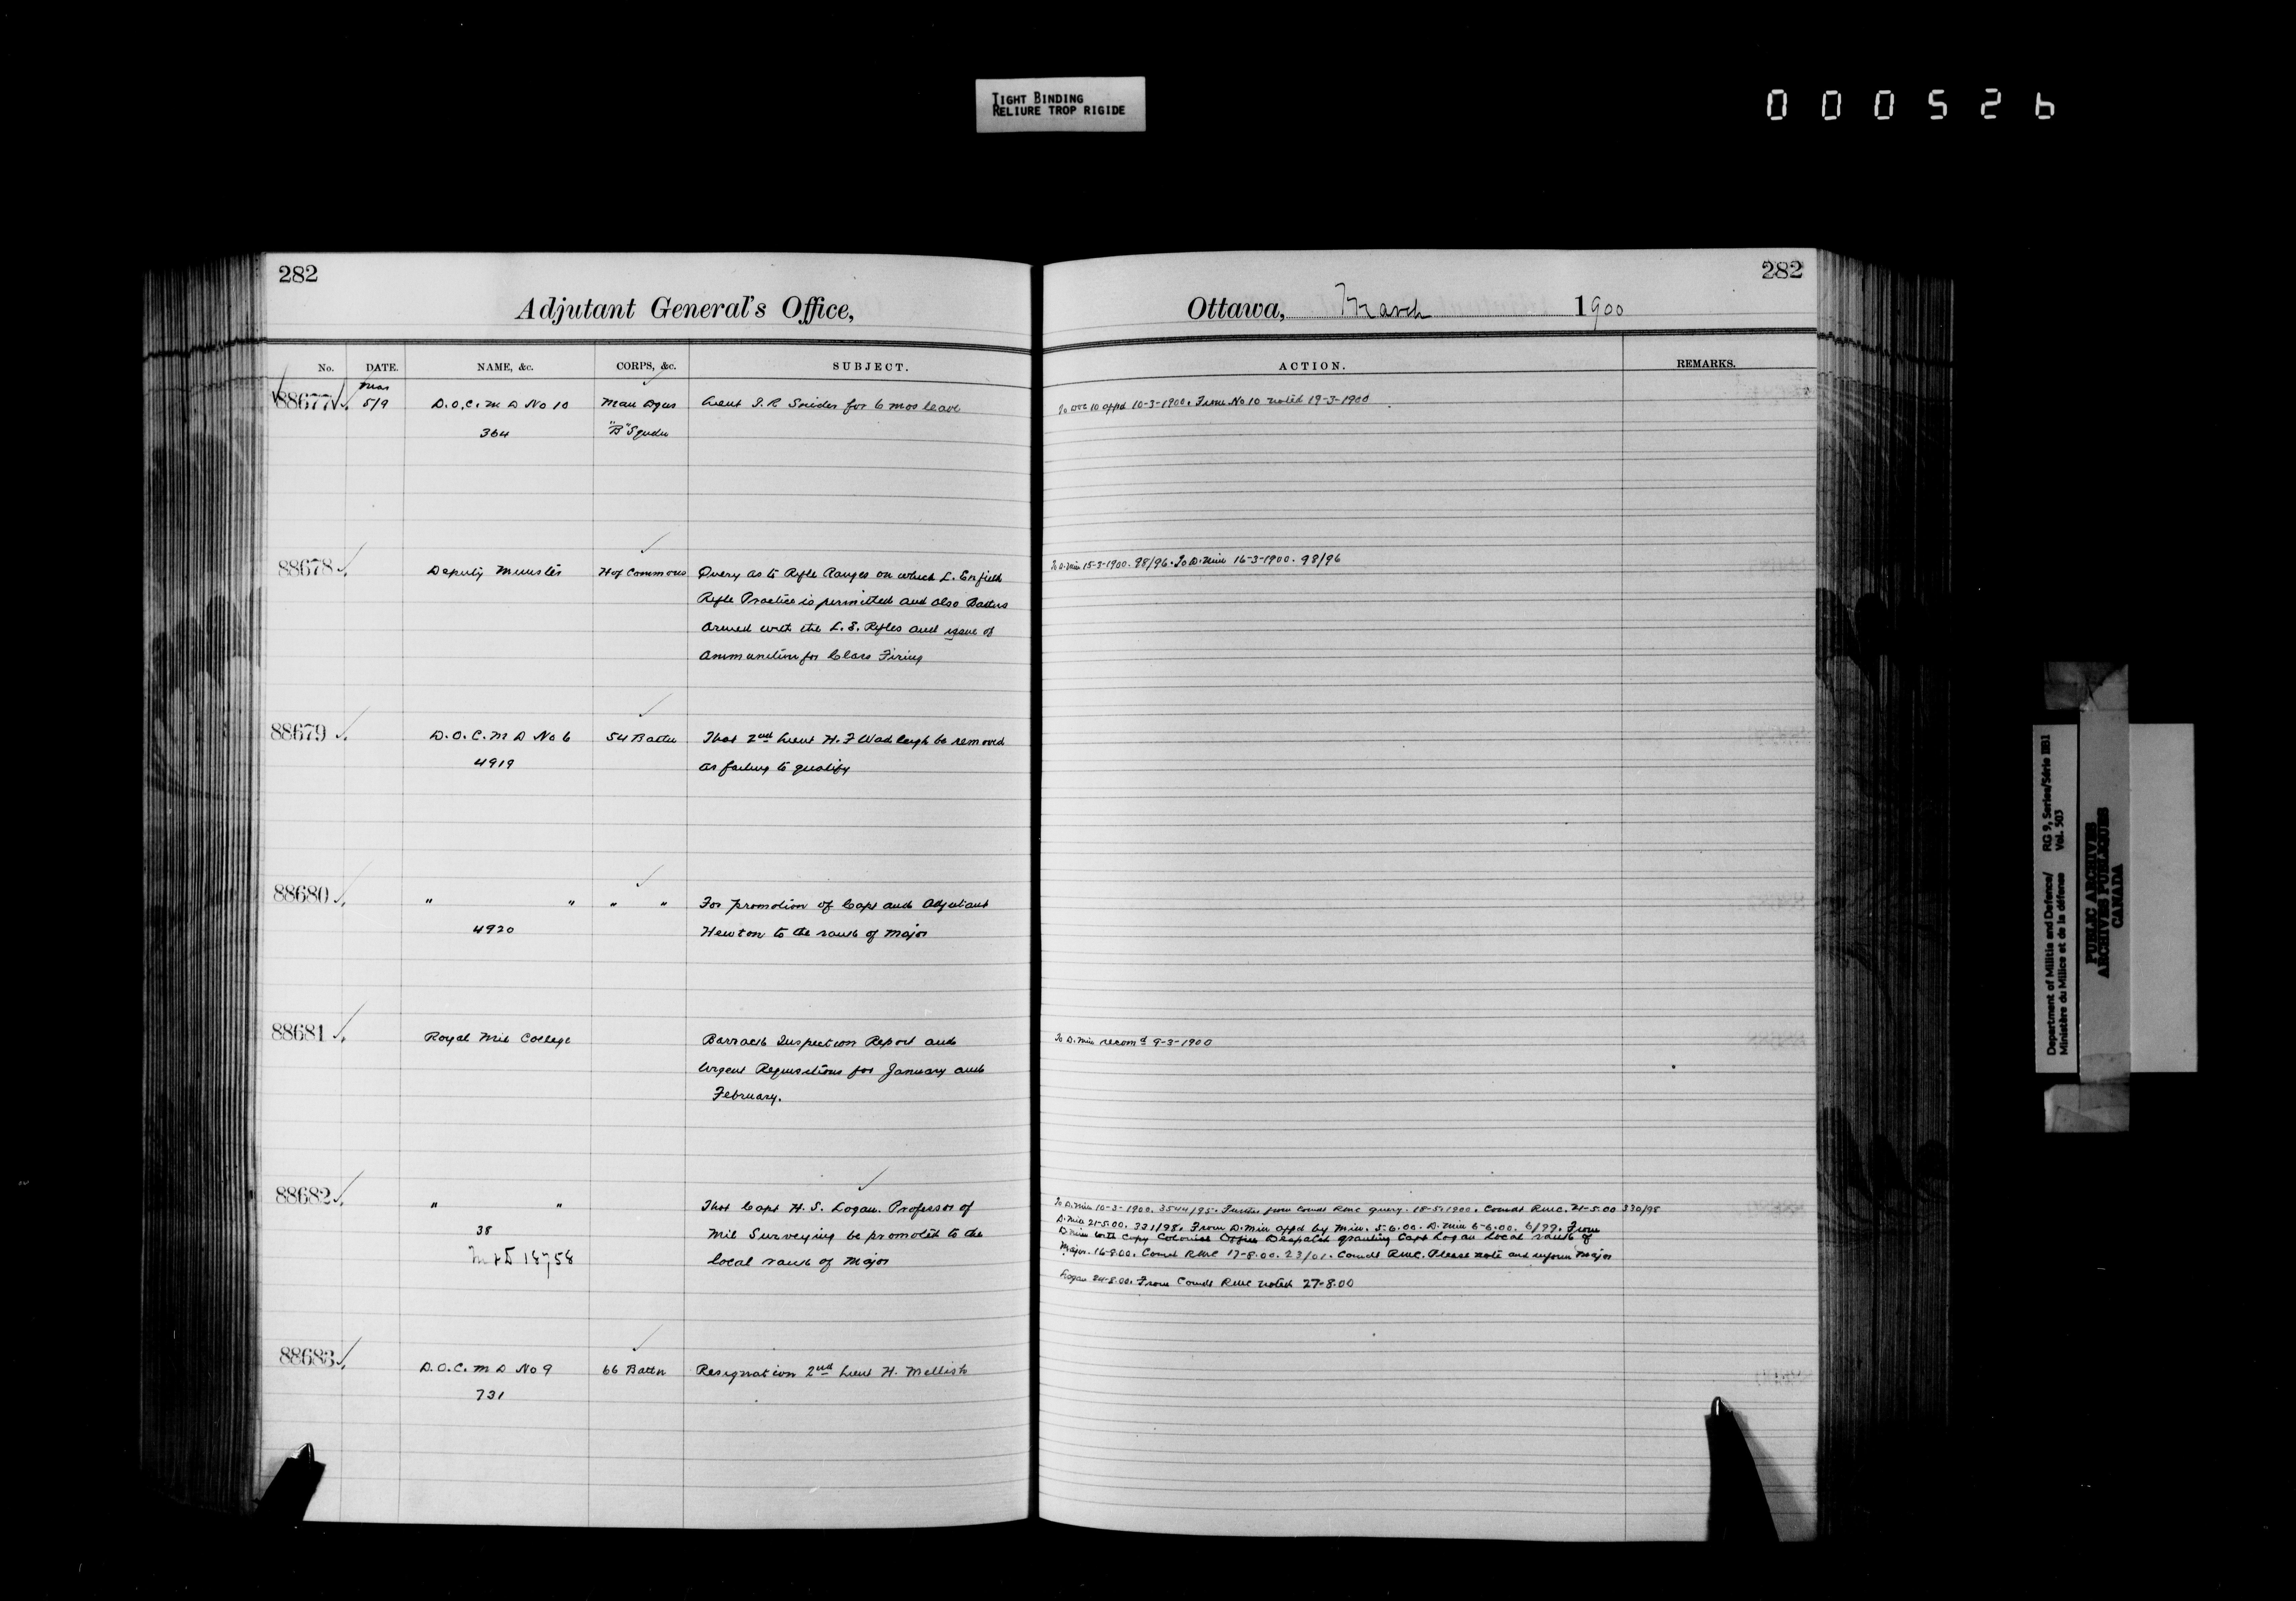 TIGHT BINDING
RELIURE TROP RIGIDE
000526
282
Adjutant General's Office,
No. DATE. NAME, &c. CORPS, &c. SUBJECT.
88677 Mar 5/9 D.O.C. M D No 10 Man Dgns Lieut S.R Snider for 6 mos leave
364 "B" Squdn
88678 Deputy Minister H of Commons Query as to Rifle Ranges on which L. Enfield
Rifle Practice is permitted and also Battns
armed with the L. E. Rifles and issue of
Ammunition for Class Firing
88679 D.O.C. M D No 6 54 Battn That 2nd Lieut H. F Wadleigh be removed
4919 as failing to qualify
88680 " " " " For promotion of Capt and Adjutant
4920 Hewton to the rank of Major
88681 Royal Mil College Barrack Inspection Report and
Urgent Requisitions for January and
February.
88682 " " That Capt H. S. Logan. Professor of
38 Mil Surveying be promoted to the
18758 local rank of Major
88683 D.O.C. M D No 9 66 Battn Resignation 2nd Lieut H. Mellish
731
282
Ottawa, March 1900
ACTION. REMARKS.
To DOC 10 appd 10-3-1900. From No 10 noted 19-3-1900
To D. Min 15-3-1900. 98/96. To D. Min 16-3-1900. 98/96
To D. Min recomd 9-3-1900
To D. Min 10-3-1900. 3544/95. Further from Comdt RMC query. 18-5-1900. Comdt RMC. 21-5.00 330/98
D. Min 21-5.00. 331/98. From D. Min appd by Min. 5.6.00. D. Min 6-6.00. 6/99. From
D. Min with copy Colonial Office Despatch granting Capt Logan Local rank of
Major. 16-8.00. Comdt RMC 17-8.00. 23/01. Comdt RMC. Please note and inform Major
Logan 24-8.00. From Comdt RMC noted 27-8.00
Department of Militia and Defence/ RG 9, Series/Série II B1
Ministère du Milice et de la défense Vol. 503
PUBLIC ARCHIVES
ARCHIVES PUBLIQUES
CANADA